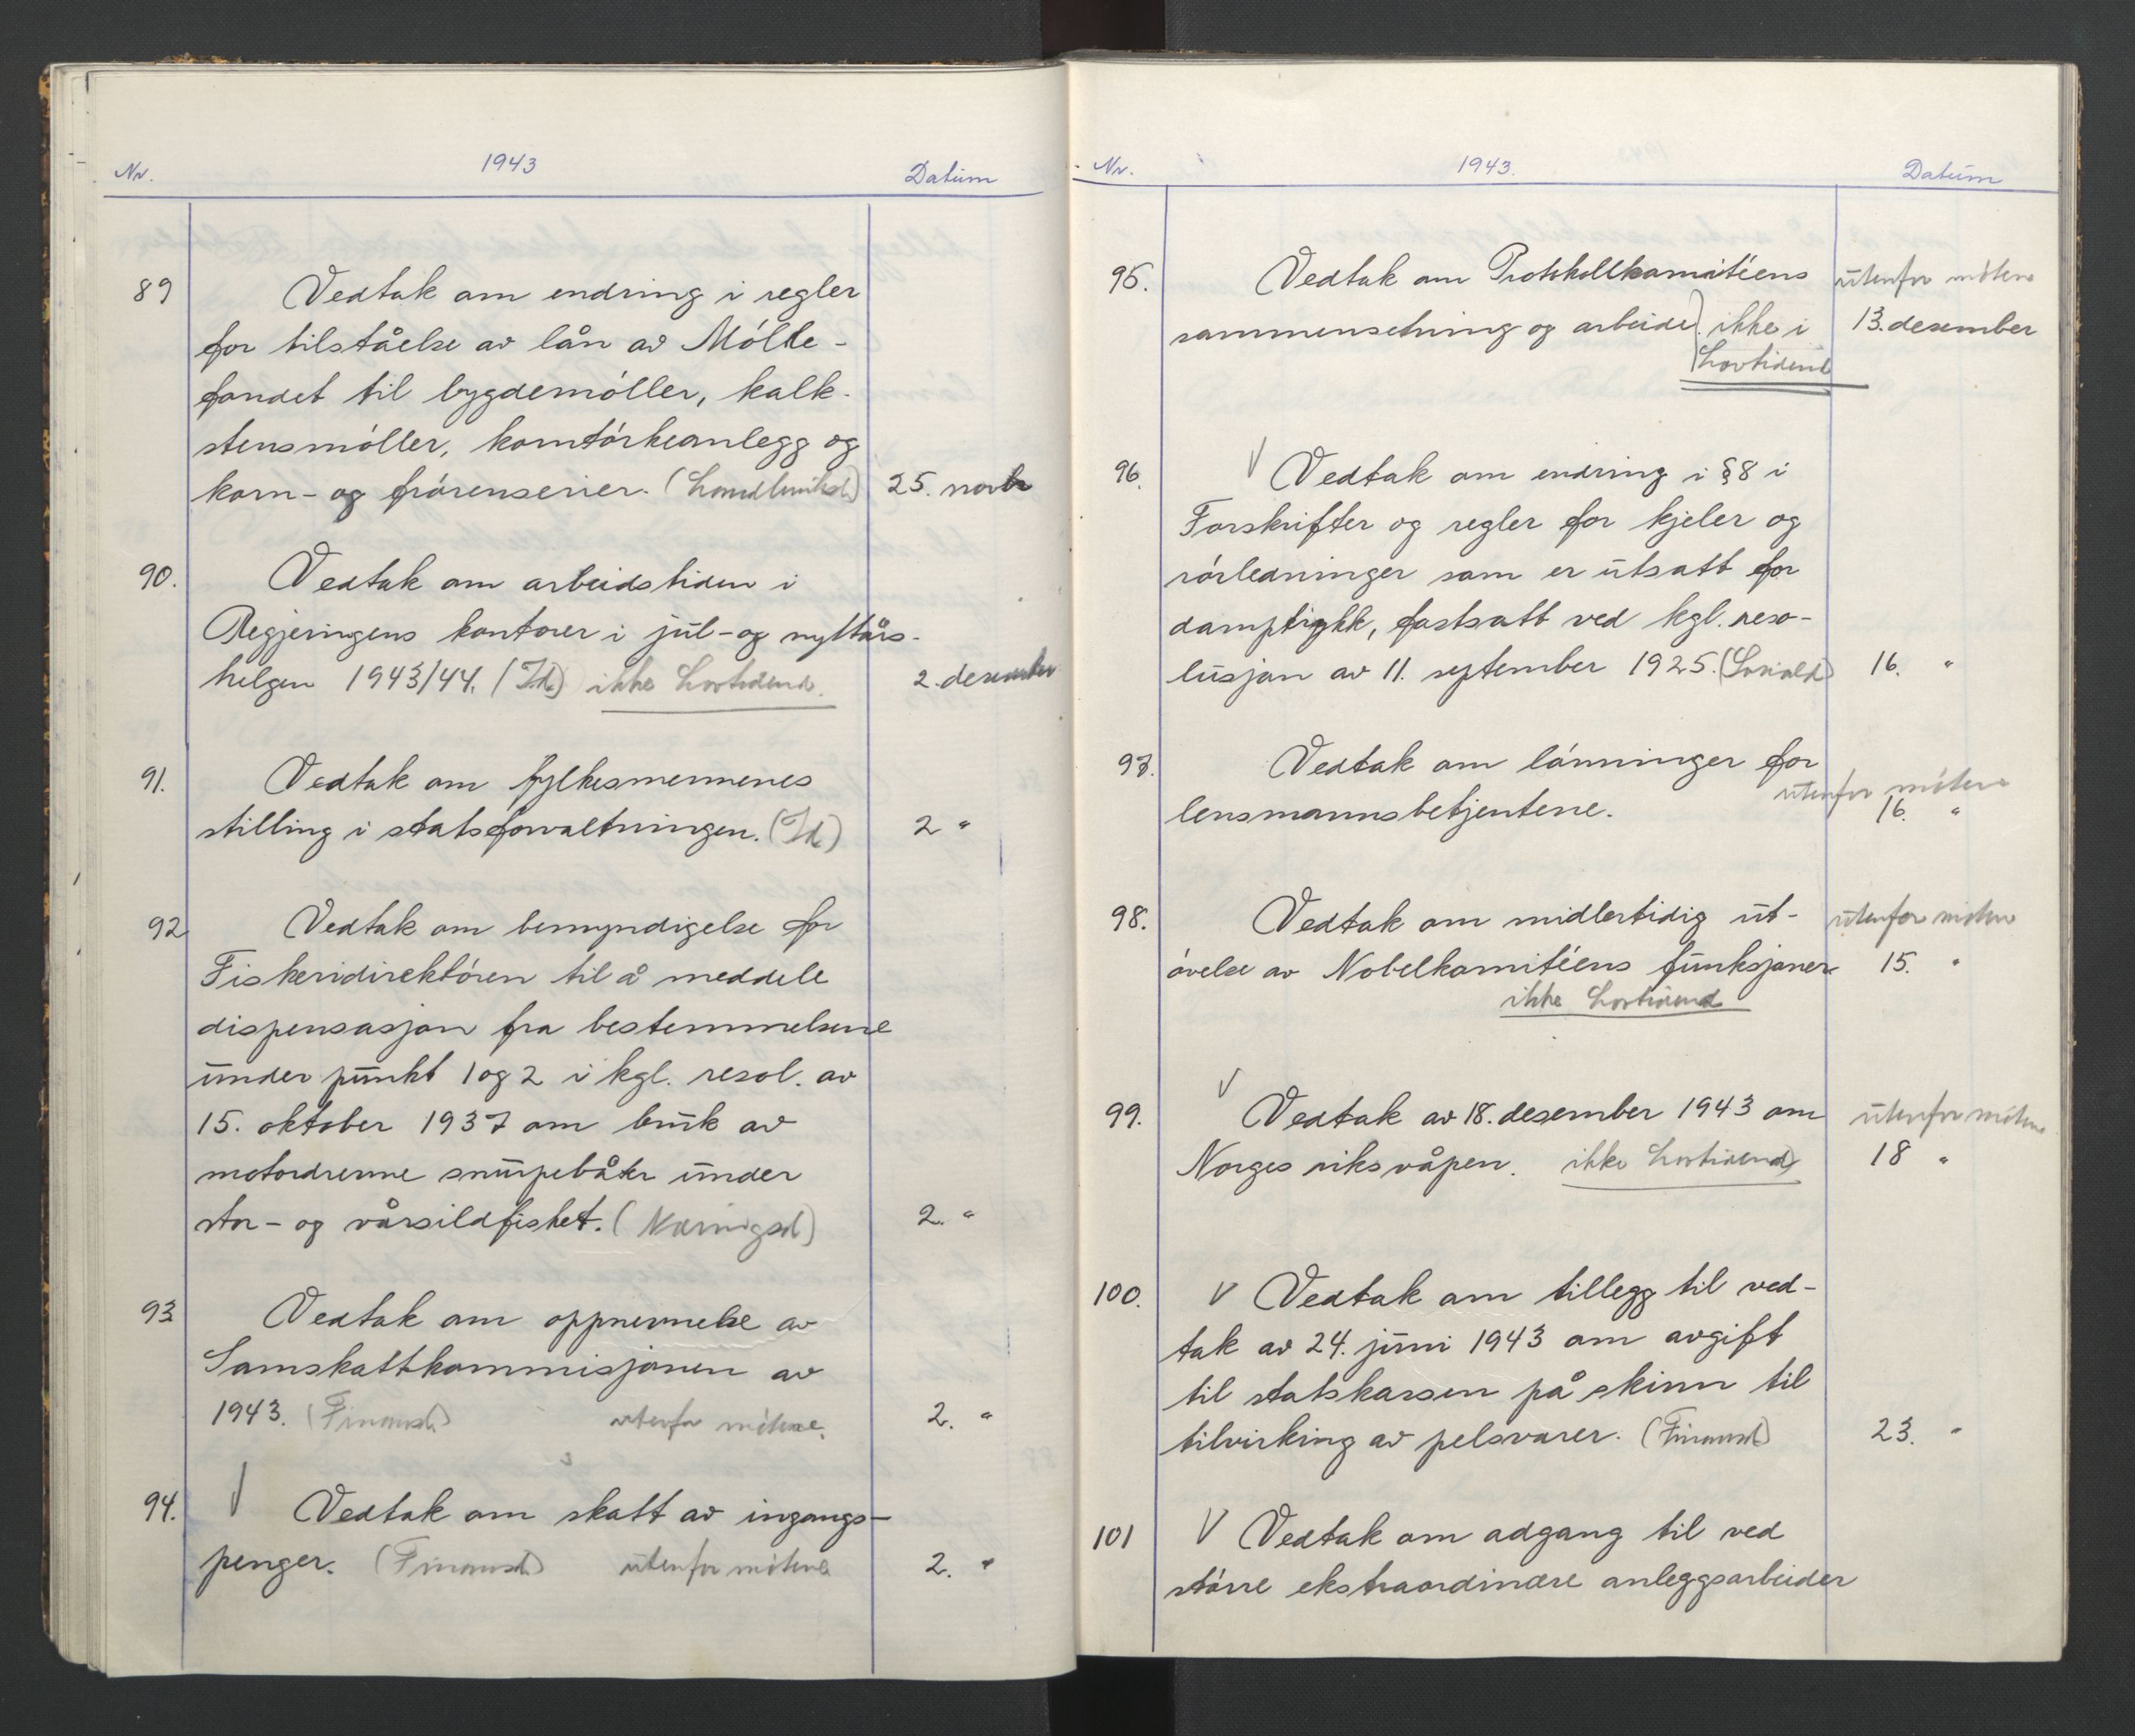 Nr. 1943 Datum
89 Vedtak om endring i regler
for tilståelse av lån av Mölle-
fondet til bygdemöller, kalk-
stensmöller, korntörkeanlegg og
korn- og frörenserier. (Landbruksd) 25. novbr
90. Vedtak om arbeidstiden i
Regjeringens kontorer i jul- og nyttårs-
helgen 1943/44. (Id.) ikke Lovtidend. 2. desember
91. Vedtak om fylkesmennenes
stilling i statsforvaltningen. (Id.) 2 "
92 Vedtak om bemyndigelse for
Fiskeridirektören til å meddele
dispensasjon fra bestemmelsene
under punkt 1 og 2 i kgl. resol. av
15. oktober 1937 om bruk av
motordrevne snurpebåter under
stor- og vårsildfisket. (Næringsd) 2. "
93 Vedtak om oppnevnelse av
Samskattkommisjonen av
1943. (Finansd.) utenfor mötene. 2. "
94. V Vedtak om skatt av ingangs-
penger. (Finansd) utenfor mötene 2. "
Nr. 1943. Datum
95. Vedtak om Protokollkomitéens utenfor mötene
sammensetning og arbeide). ikke i 13. desember
Lovtidend
96. V Vedtak om endring i § 8 i
Forskrifter og regler for kjeler og
rörledninger som er utsatt for
damptrykk, fastsatt ved kgl. reso-
lusjon av 11. september 1925. (Sosiald) 16. "
97. Vedtak om lönninger for
utenfor mötene
lensmannsbetjentene. 16. "
98. Vedtak om midlertidig ut- utenfor mötene
övelse av Nobelkomitéens funksjoner 15. "
ikke Lovtidend
99. V Vedtak av 18. desember 1943 om utenfor mötene
Norges riksvåpen. ikke Lovtidend 18 "
100. V Vedtak om tillegg til ved-
tak av 24. juni 1943 om avgift
til statskassen på skinn til
tilvirking av pelsvarer. (Finansd) 23. "
101 V Vedtak om adgang til ved
större ekstraordinære anleggsarbeider